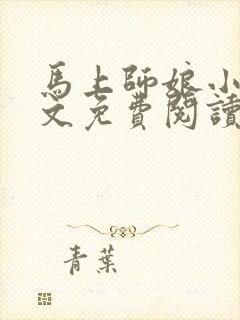 馬上師娘小
文免費閱讀
青葉